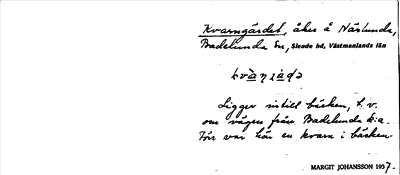 Kvarngärdet, åker å Näslunda,
Badelunda Sn, Siende hd, Västmanlands län
kvànjàdə
Ligger intill bäcken, t.v.
om vägen från Badelunda k:a.
Förr var här en kvarn i bäcken
MARGIT JOHANSSON 1957.